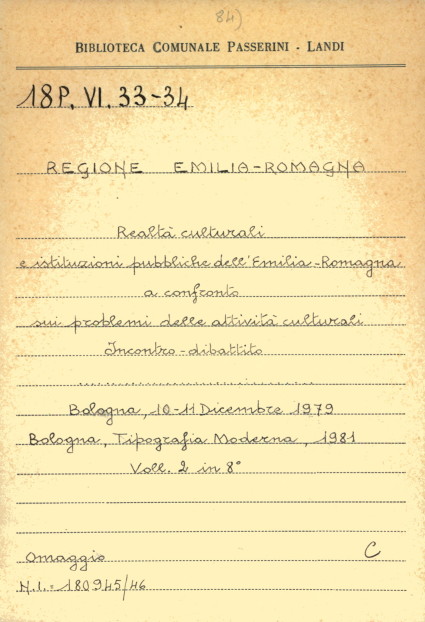 84)
BIBLIOTECA COMUNALE PASSERINI - LANDI
18P. VI. 33-34
REGIONE EMILIA-ROMAGNA
Realtà culturali
e istituzioni pubbliche dell'Emilia-Romagna
a confronto
sui problemi delle attività culturali
Incontro-dibattito
Bologna, 10-11 Dicembre 1979
Bologna, Tipografia Moderna, 1981
Voll. 2 in 8°
Omaggio C
N.I.= 180945/46